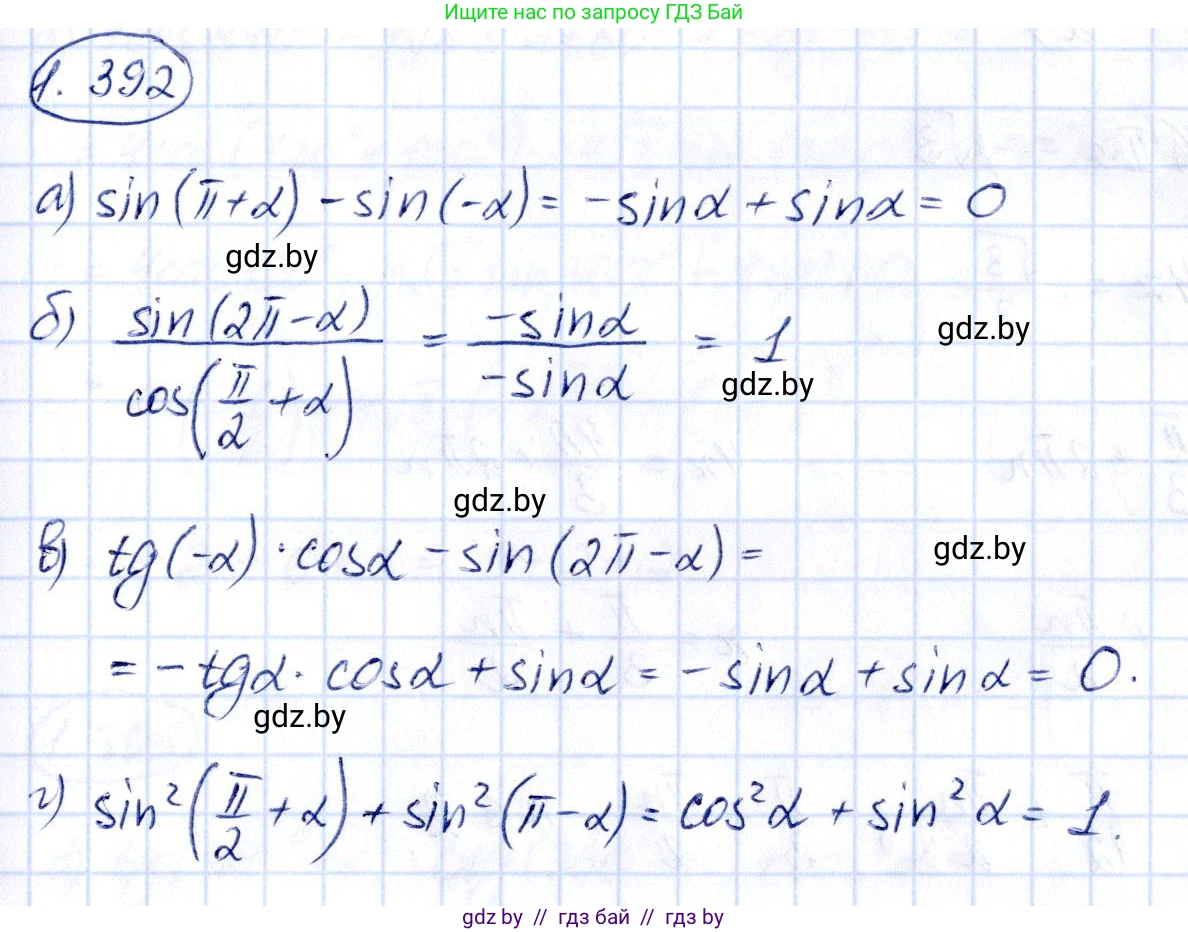 Ищите нас по запросу ГДЗ Бай
1. 392
а) sin(π+α) - sin(-α) = -sinα + sinα = 0
gdz.by
б) sin(2π-α) / cos(π/2 + α) = -sinα / -sinα = 1
gdz.by
gdz.by
gdz.by
в) tg(-α) · cosα - sin(2π-α) =
gdz.by
= -tgα · cosα + sinα = -sinα + sinα = 0.
gdz.by
г) sin²(π/2 + α) + sin²(π-α) = cos²α + sin²α = 1.
gdz.by // гдз бай // гдз by